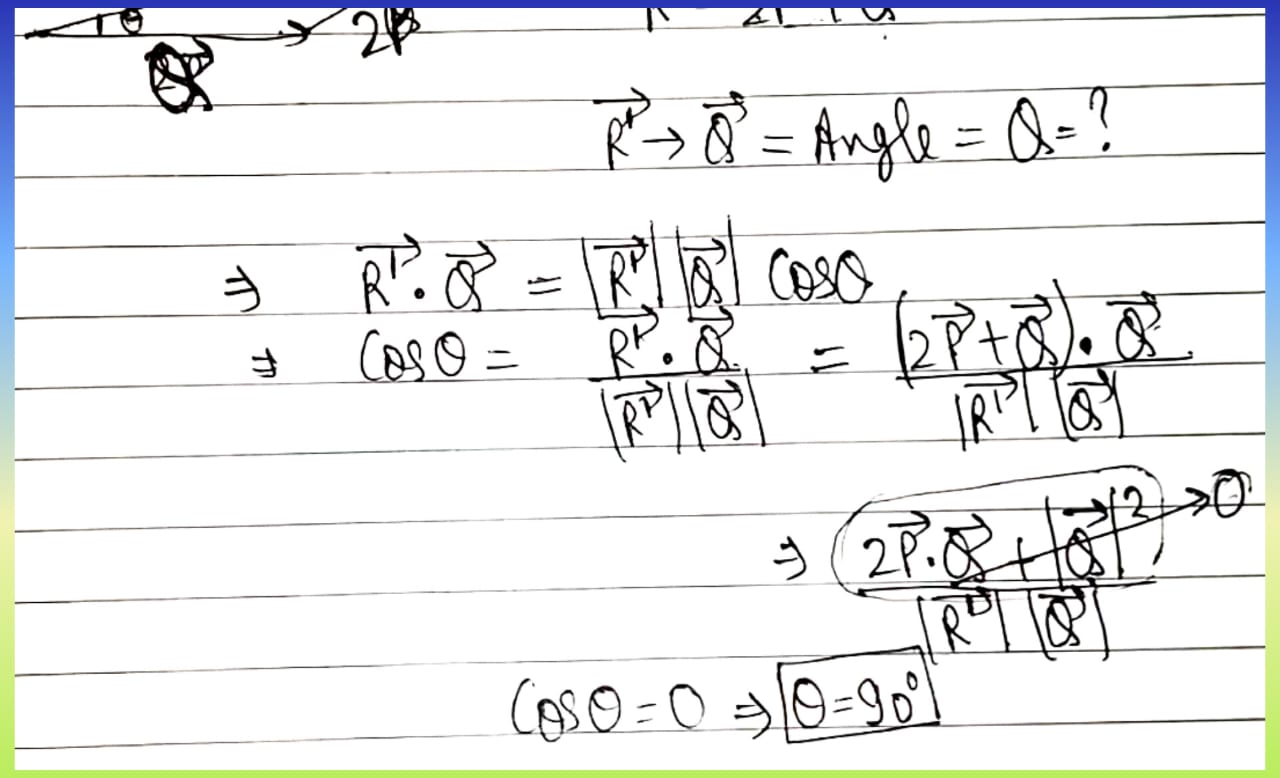 θ
2P
Q⃗
R⃗' → Q⃗ = Angle = θ = ?
⇒ R⃗' · Q⃗ = |R⃗'| |Q⃗| Cosθ
⇒ Cosθ = R⃗' · Q⃗ / |R⃗'| |Q⃗| = (2P⃗ + Q⃗) · Q⃗ / |R⃗'| |Q⃗|
⇒ 2P⃗ · Q⃗ + |Q⃗|² → 0 / |R⃗'| |Q⃗|
Cosθ = 0 ⇒ θ = 90°